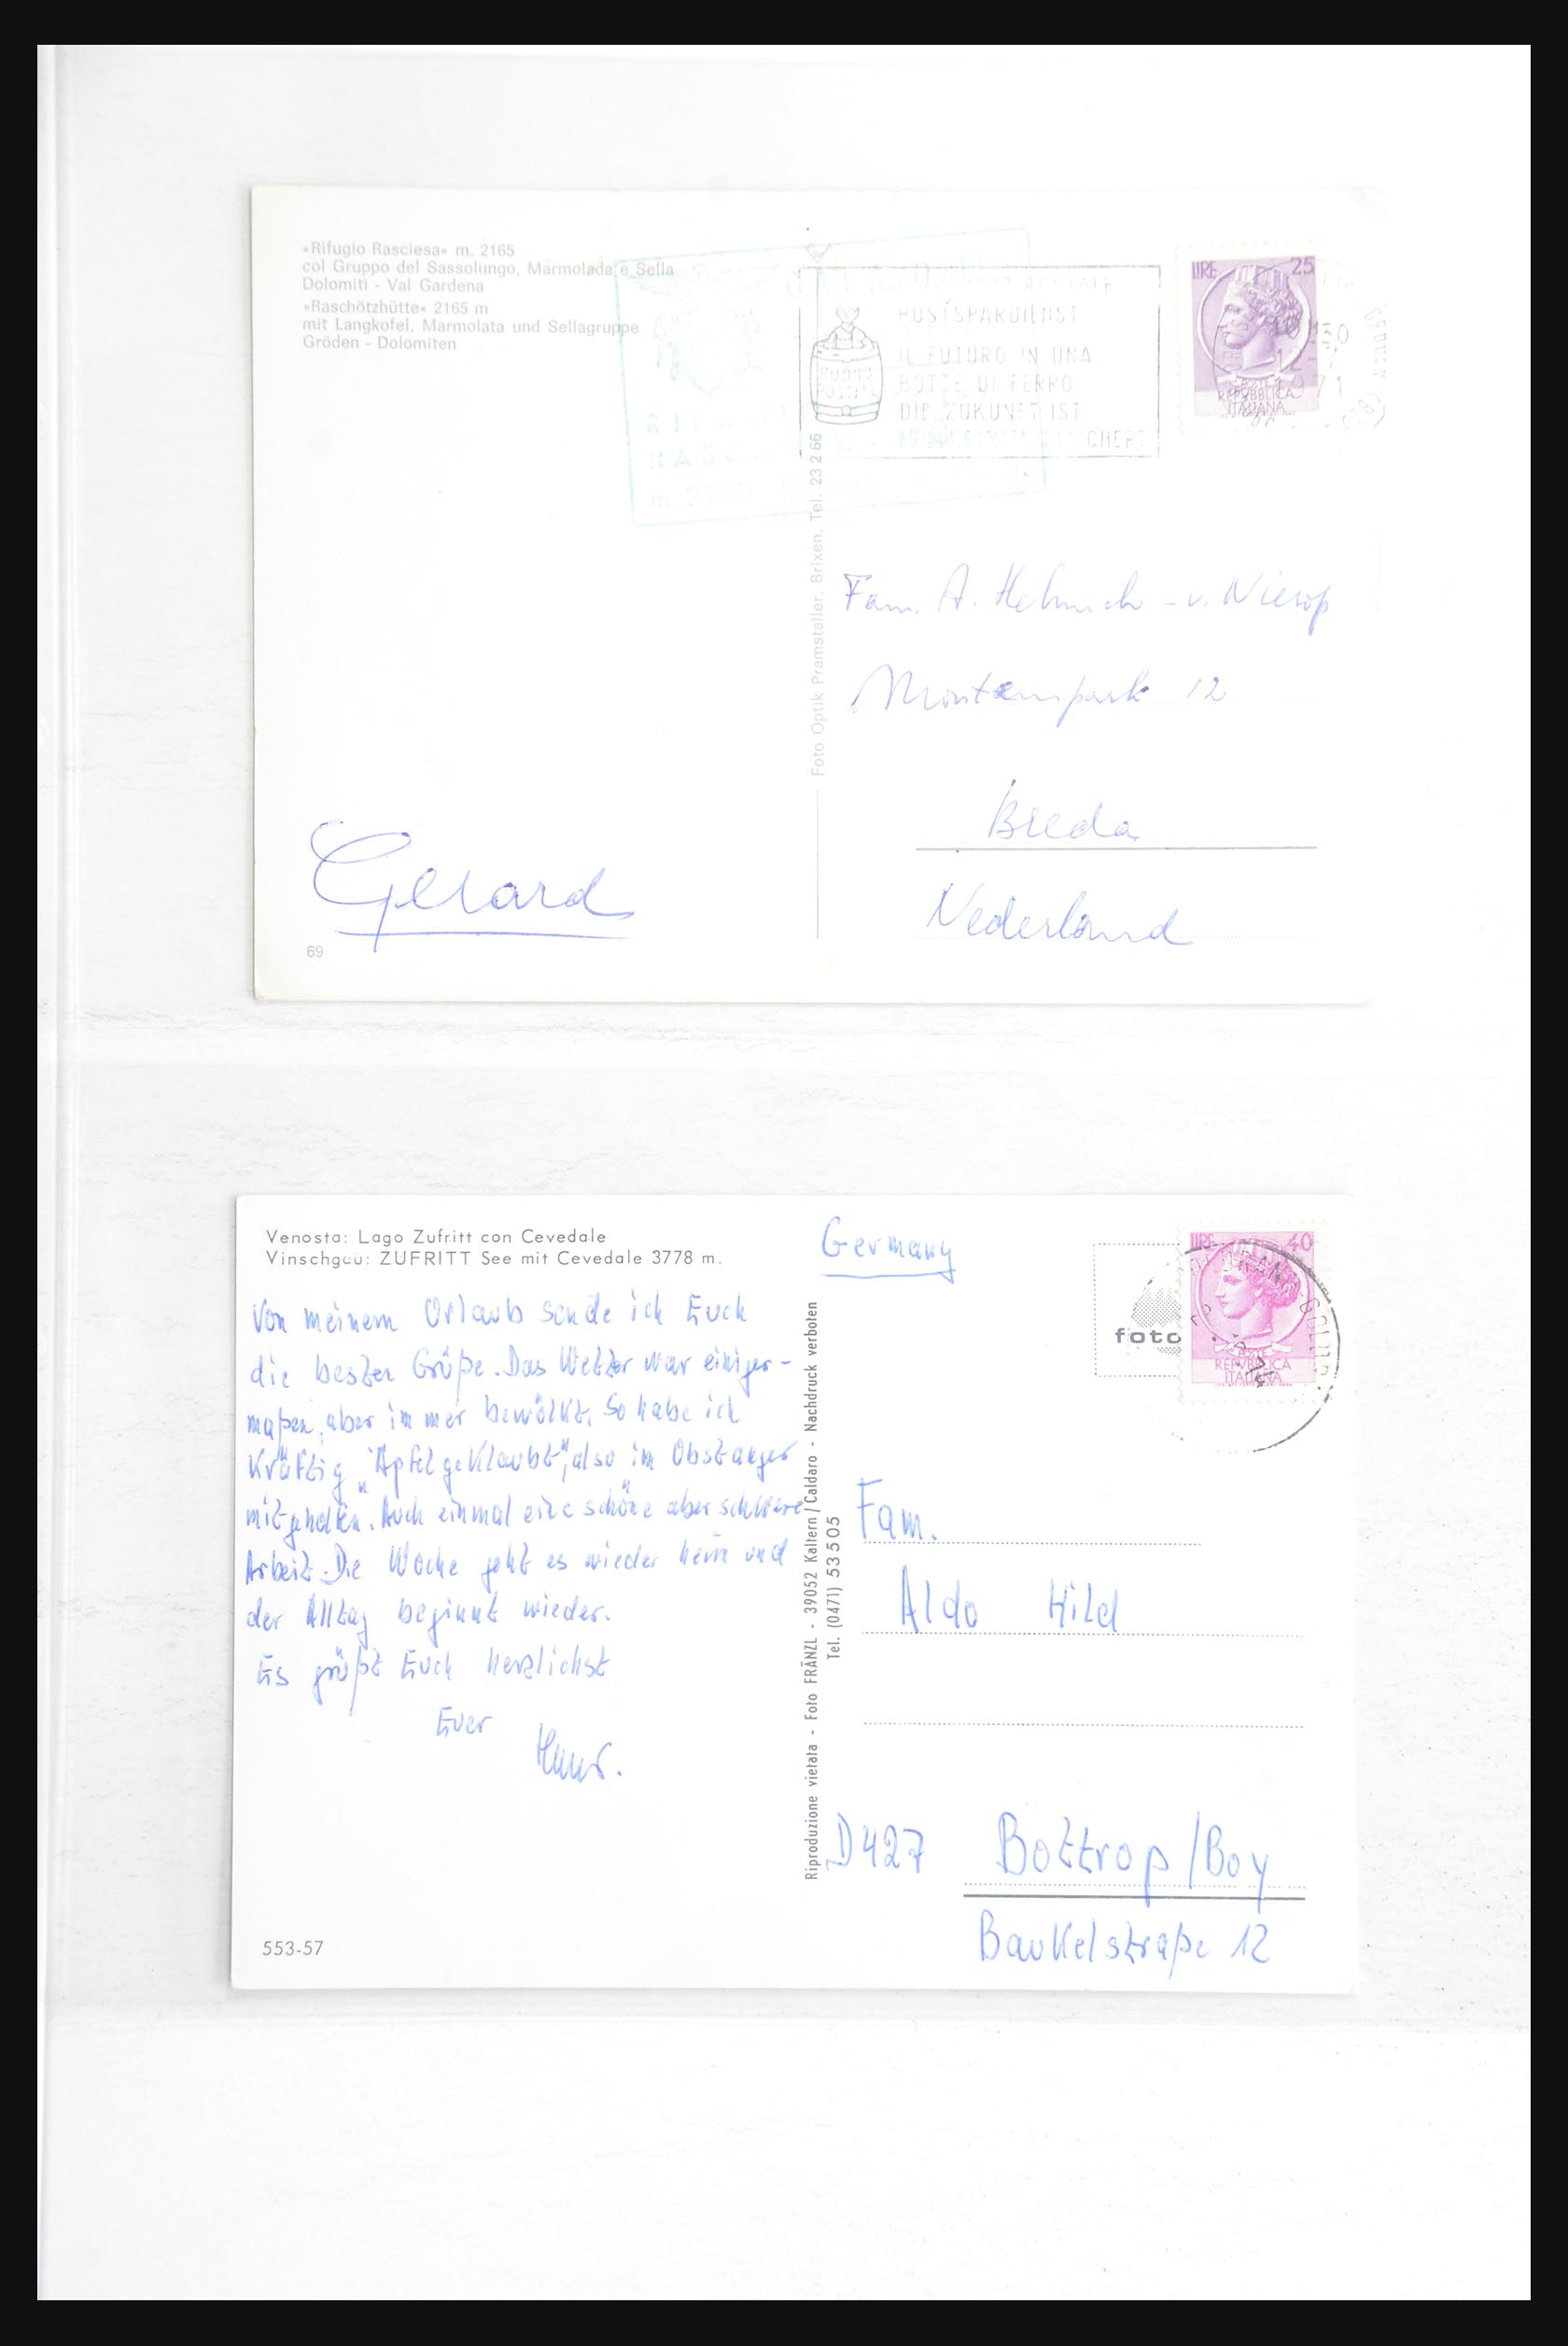 «Rifugio Rasciesa» m. 2165
col Gruppo del Sassolungo, Marmolada e Sella
Dolomiti - Val Gardena
»Raschötzhütte« 2165 m
mit Langkofel, Marmolata und Sellagruppe
Gröden - Dolomiten
POSTSPARDIENST
IL FUTURO IN UNA
BOTTE DI FERRO
DIE ZUKUNFT IST
BUONO
POSTALE
LIRE 25
POSTE
REPVBBLICA
ITALIANA
1971
Foto Optik Pramstaller, Brixen, Tel. 23 2 66
Fam. A. Helmich - v. Nierop
12
Breda
Nederland
Gerard
69
Venosta: Lago Zufritt con Cevedale
Vinschgau: ZUFRITT See mit Cevedale 3778 m.
Germany
foto
LIRE 40
POSTE
REPVBBLICA
ITALIANA
Von meinem Urlaub sende ich Euch
die besten Grüße. Das Wetter war einiger-
maßen, aber immer bewölkt. So habe ich
kräftig „Äpfel geklaubt", also im Obstanger
mitgeholfen. Auch einmal eine schöne aber schwere
Arbeit. Die Woche geht es wieder heim und
der Alltag beginnt wieder.
Es grüßt Euch herzlichst
Euer
Riproduzione vietata - Foto FRÄNZL - 39052 Kaltern / Caldaro - Nachdruck verboten
Tel. (0471) 53505
Fam.
Aldo Hild
D427 Bottrop/Boy
Baukelstraße 12
553-57